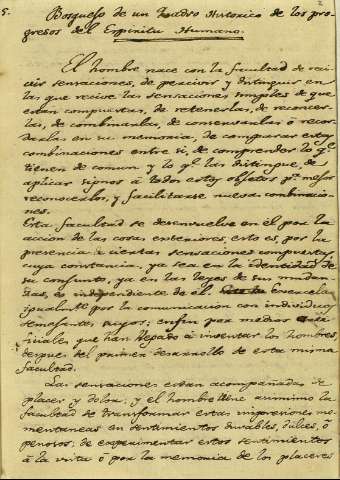 5. Bosquejo de un Quadro Historico de los pro-
gresos del Espiritu Humano.
El hombre nace con la facultad de reci-
vir sensaciones, de percivir y distinguir en
las que recive las sensaciones simples de que
están compuestas, de retenerlas, de reconocer-
las, de combinarlas, de conservarlas ó recor-
darlas en su memoria, de comparar estas
combinaciones entre si, de comprender lo q.e
tienen de comun y lo q.e las distingue, de
aplicar signos á todos estos objetos p.a mejor
reconocerlos, y facilitarse nuevas combinacio-
nes.
Esta facultad se desenvuelve en él por la
accion de las cosas exteriores, esto es, por la
presencia de ciertas sensaciones compuestas
cuya constancia, ya sea en la identidad de
su conjunto, ya en las leyes de sus mudan-
zas, es independiente de él.
igualm.te por la comunicacion con individuos
semejantes suyos; en fin por medios arti-
ficiales que han llegado á inventar los hombres
despues del primer desarrollo de esta misma
facultad.
Las sensaciones están acompañadas de
placer y dolor; y el hombre tiene asimismo la
facultad de transformar estas impresiones mo-
mentaneas en sentimientos durables, dulces, ó
penosos; de experimentar estos sentimientos
á la vista ó por la memoria de los placeres